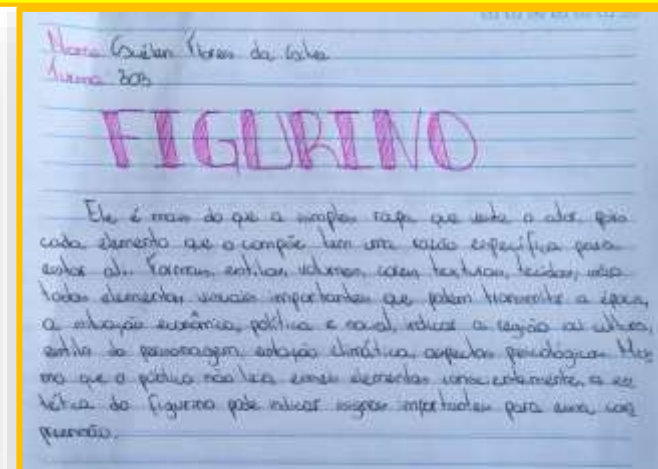 Nome
Turma 303
FIGURINO
Ele é mais do que a simples roupa que veste o ator, pois
cada elemento que o compõe tem uma razão específica para
estar ali. Formas, estilos, volumes, cores, texturas, tecidos, são
todos elementos visuais importantes que podem transmitir a época,
a situação econômica, política e social, indicar a região ou cultura,
estilo do personagem, estação climática, aspectos psicológicos. Mes
mo que o público não leia esses elementos conscientemente, a es
tética do figurino pode indicar signos importantes para essa com
preensão.